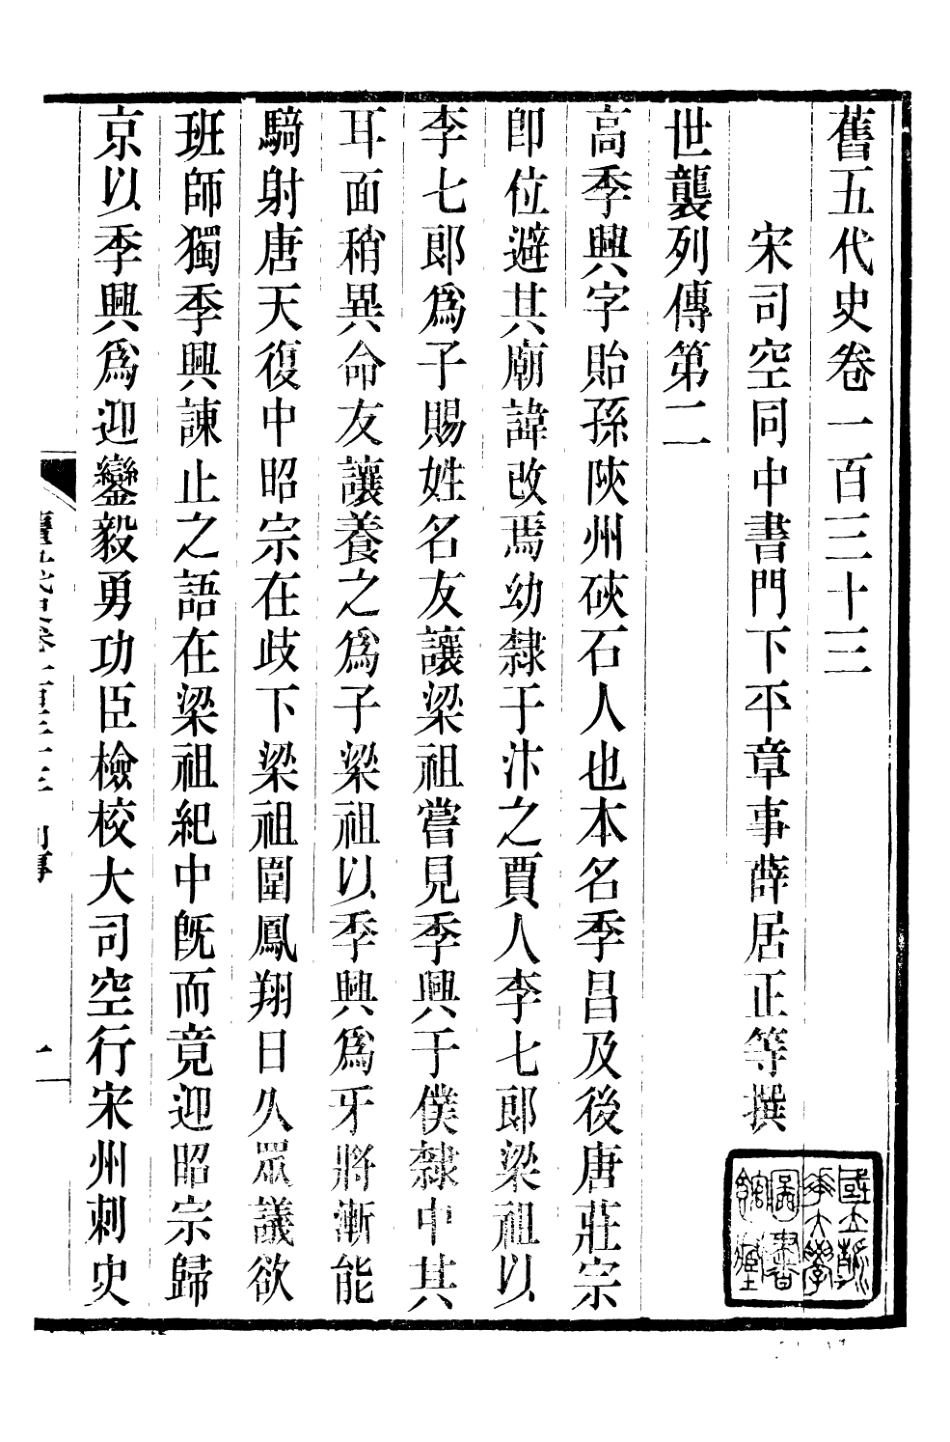 舊五代史卷一百三十三
宋司空同中書門下平章事薛居正等撰
世襲列傳第二
高季興字貽孫陝州硤石人也本名季昌及後唐莊宗
卽位避其廟諱改焉幼隸于汴之賈人李七郎梁祖以
李七郎爲子賜姓名友讓梁祖嘗見季興于僕隸中其
耳面稍異命友讓養之爲子梁祖以季興爲牙將漸能
騎射唐天復中昭宗在歧下梁祖圍鳳翔日久眾議欲
班師獨季興諫止之語在梁祖紀中旣而竟迎昭宗歸
京以季興爲迎鑾毅勇功臣檢校大司空行宋州刺史
國立浙江大學圖書館藏